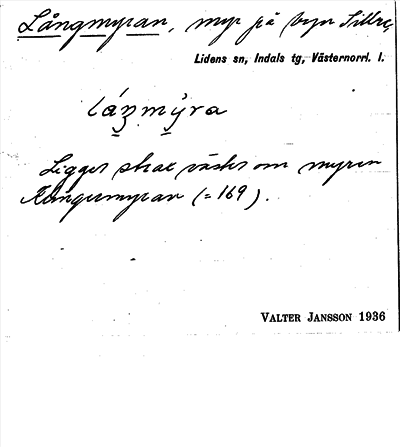 Långmyran, myr på byn Sillre,
Lidens sn, Indals tg, Västernorrl. l.
láŋmy̆ra
Ligger strax väster om myren
Kångermyran (=169).
VALTER JANSSON 1936